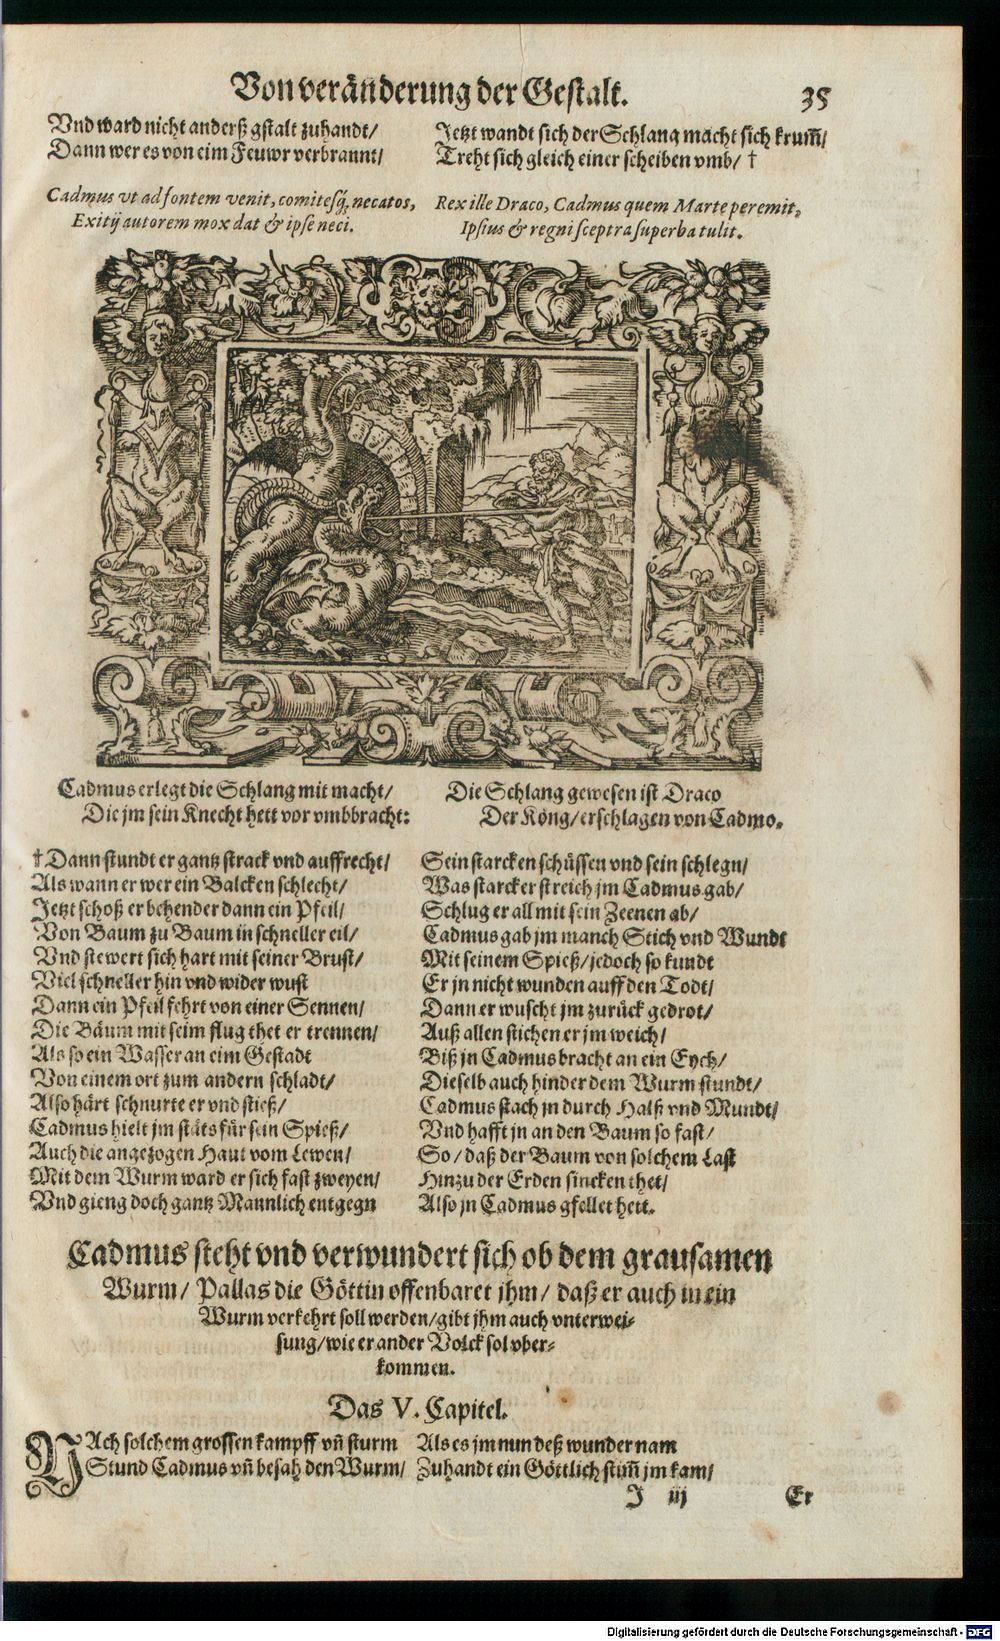 Von veränderung der Gestalt. 35
Vnd ward nicht anderß gstalt zuhandt/
Dann wer es von eim Feuwr verbrannt/
Jetzt wandt sich der Schlang macht sich krum̃/
Treht sich gleich einer scheiben vmb/ †
Cadmus vt ad fontem venit, comitesq́; necatos,
Exitij autorem mox dat & ipse neci.
Rex ille Draco, Cadmus quem Marte peremit,
Ipsius & regni sceptra superba tulit.
Cadmus erlegt die Schlang mit macht/
Die jm sein Knecht hett vor vmbbracht:
Die Schlang gewesen ist Draco
Der Köng/ erschlagen von Cadmo.
† Dann stundt er gantz strack vnd auffrecht/
Als wann er wer ein Balcken schlecht/
Jetzt schoß er behender dann ein Pfeil/
Von Baum zu Baum in schneller eil/
Vnd stewert sich hart mit seiner Brust/
Viel schneller hin vnd wider wust
Dann ein Pfeil fehrt von einer Sennen/
Die Bäum mit seim flug thet er trennen/
Als so ein Wasser an eim Gestadt
Von einem ort zum andern schladt/
Also härt schnurte er vnd stieß/
Cadmus hielt jm stäts für sein Spieß/
Auch die angezogen Haut vom Lewen/
Mit dem Wurm ward er sich fast zweyen/
Vnd gieng doch gantz Mannlich entgegn
Sein starcken schüssen vnd sein schlegn/
Was starcker streich jm Cadmus gab/
Schlug er all mit sein Zeenen ab/
Cadmus gab jm manch Stich vnd Wundt
Mit seinem Spieß/ jedoch so kundt
Er jn nicht wunden auff den Todt/
Dann er wuscht jm zurück gedrot/
Auß allen stichen er jm weich/
Biß jn Cadmus bracht an ein Eych/
Dieselb auch hinder dem Wurm stundt/
Cadmus stach jn durch Halß vnd Mundt/
Vnd hafft jn an den Baum so fast/
So/ daß der Baum von solchem Last
Hinzu der Erden sincken thet/
Also jn Cadmus gfellet hett.
Cadmus steht vnd verwundert sich ob dem grausamen
Wurm/ Pallas die Göttin offenbaret jhm/ daß er auch in ein
Wurm verkehrt soll werden/ gibt jhm auch vnterwei-
sung/ wie er ander Volck sol vber-
kommen.
Das V. Capitel.
NAch solchem grossen kampff vñ sturm
Stund Cadmus vñ besah den Wurm/
Als es jm nun deß wunder nam
Zuhandt ein Göttlich stim̃ jm kam/
J iij Er
Digitalisierung gefördert durch die Deutsche Forschungsgemeinschaft - DFG